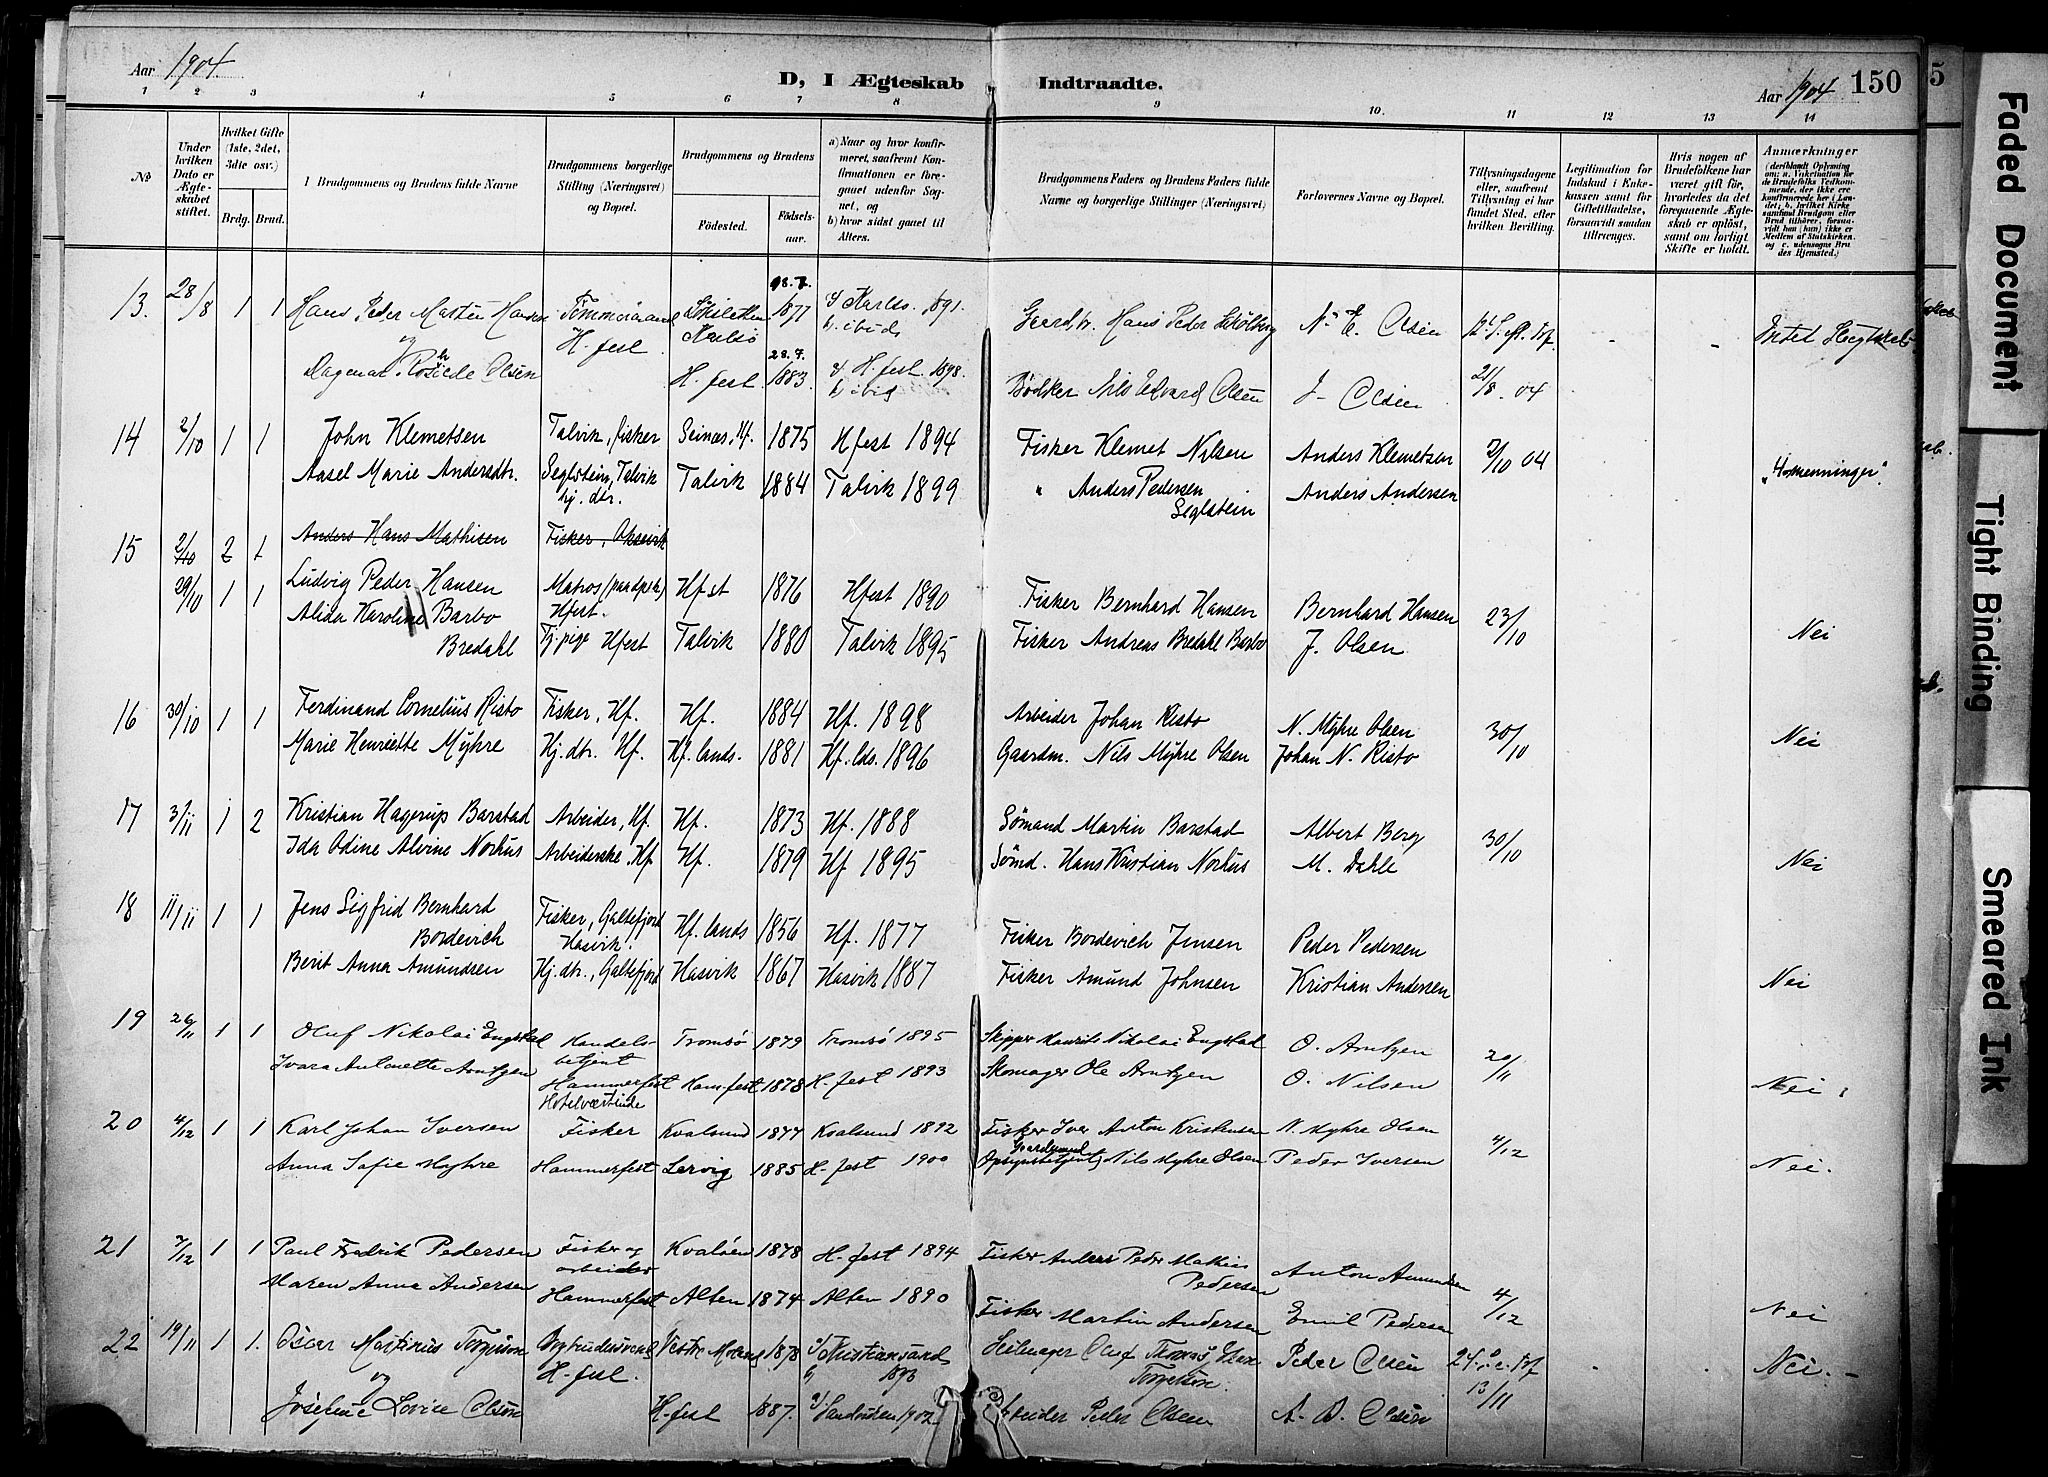 Aar 1904.
D, I Ægteskab Indtraadte.
Aar 1904 150
1 2 3 4 5 6 7 8 9 10. 11 12 13 14
No
Under hvilken Dato er Ægteskabet stiftet.
Hvilket Gifte (1ste, 2det, 3die osv.)
Brdg. Brud.
I Brudgommens og Brudens fulde Navne
Brudgommens borgerlige Stilling (Næringsvei) og Bopæl.
Brudgommens og Brudens
Fødested. Fødselsaar.
a) Naar og hvor konfirmeret, saafremt Konfirmationen er foregaaet udenfor Sognet, og b) hvor sidst gaaet til Alters.
Brudgommens Faders og Brudens Faders fulde Navne og borgerlige Stillinger (Næringsvei)
Forlovernes Navne og Bopæl.
Tillysningsdagene eller, saafremt Tillysning ei har fundet Sted, efter hvilken Bevilling.
Legitimation for Indskud i Enkekassen samt for Giftetilladelse, forsaavidt saadan tiltrænges.
Hvis nogen af Brudefolkene har været gift før, hvorledes da det foregaaende Ægteskab er opløst, samt om lovligt Skifte er holdt.
Anmærkninger
13. 28/8 1 1 Hans Peder Martin Hansen Tømmermand 1877 a) Karlsø. 1891. Hans Peder N. E. Olsen
og H. fest. Karlsø b) ibid Intet Slegtskab
Dagmar Olsen H. fest 28.7. 1883. a) H. fest 1898. b) ibid Bødker Nils Edvard Olsen J. Olsen 21/8. 04
14 2/10 1 1 John Klemetsen Talvik, fisker 1875 Hfest 1894 Fisker Klemet Nilsen Anders Klemetsen 2/10 04
Aasel Marie Andersdtr. Seglstein, Talvik hj. dtr. Talvik 1884 Talvik 1899 " Anders Pedersen Seglstein Anders Andersen "4menninger".
15 2/10 2 1 Anders Hans Mathisen Fisker, Oksevik
29/10 1 1 Ludvig Peder Hansen Matros Hfest. Hfst 1876 Hfest 1890 Fisker Bernhard Hansen Bernhard Hansen 23/10
Alida Karoline Barbo Bredahl Tj. pige Hfest Talvik 1880 Talvik 1895 Fisker Andreas Bredahl Barbo J. Olsen Nei
16 30/10 1 1 Ferdinand Cornelius Risto Fisker, Hf. Hf. 1884 Hf. 1898 Arbeider Johan Risto N. Myhre Olsen 30/10
Marie Henriette Myhre Hj. dtr. Hf. Hf. lands. 1881 Hf. lds. 1896 Gaardm. Nils Myhre Olsen Johan N. Risto Nei
17 3/11 1 2 Kristian Hagerup Barstad Arbeider, Hf. Hf. 1873 Hf. 1888 Sømand Martin Barstad Albert Berg 30/10
Ida Odine Alvine Norhus Arbeiderske, Hf. Hf. 1879 Hf 1895 Sømd. Hans Kristian Norhus M. Dahle Nei
18 11/11 1 1 Jens Sigfrid Bernhard Bordevich Fisker, Galtefjord Hasvik. Hf. lands 1856 Hf. 1877 Fisker Bordevich Jensen Peder Pedersen
Berit Anna Amundsen Hj. dtr., Galtefjord Hasvik 1867 Hasvik 1887 Fisker Amund Johnsen Kristian Andersen Nei
19 26/11 1 1 Oluf Nikolai Engstad Handelsbetjent Tromsø 1879 Tromsø 1895 Skipper Haurits Nikolai Engstad O. Arntzen 20/11
Ivara Antonette Arntzen Hammerfest Hotelværtinde Ham.fest 1878 H. fest 1893 Skomager Ole Arntzen O. Nilsen Nei.
20 4/12 1 1 Karl Johan Iversen Fisker Kvalsund 1877 Kvalsund 1892 Fisker Iver Anton Kristensen N. Myhre Olsen 4/12
Anna Sofie Myhre Hammerfest Lervig 1885 H. fest 1900 Gaardmand Nils Myhre Olsen Peder Iversen Nei.
21 7/12 1 1 Paul Fredrik Pedersen Fisker og arbeider Kvaløen 1878 H. fest 1894 Fisker Anders Peder Mathias Pedersen Anton Amundsen 4/12
Maren Anna Andersen Hammerfest Alten 1874 Alten 1890 Fisker Martin Andersen Emil Pedersen Nei
22 19/11 1 1. Oscar Martinus Torgersen H. fest. 1878 a) Kristiansund Oluf Peder Olsen 13/11 Nei. -
og
Josefine Lovise Olsen H. fest 1887. 1902. Arbeider Peder Olsen A. B. Olsen
Faded Document
Tight Binding
Smeared Ink